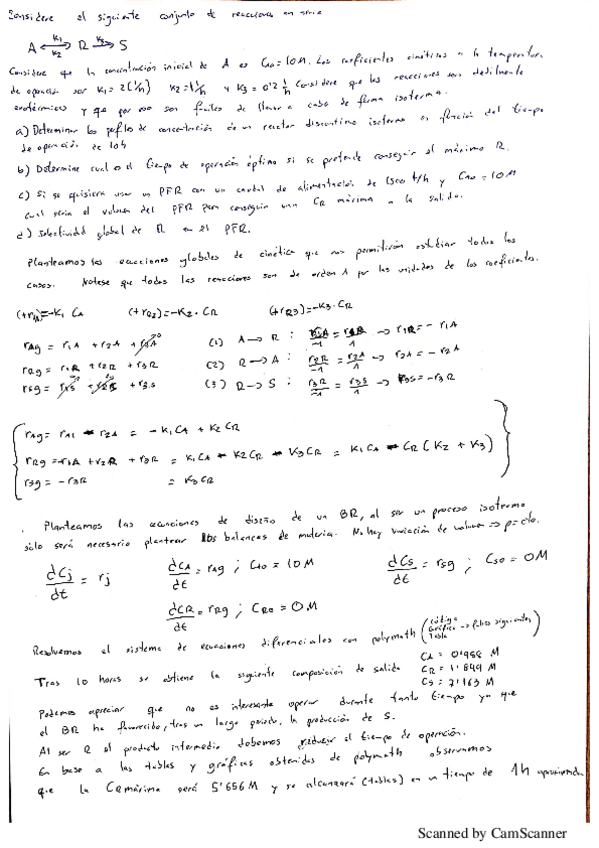 Considere el siguiente conjunto de reacciones en serie
A ⇄ R → S
K1
K2
K3
Considere que la concentración inicial de A es CA0 = 10M. Los coeficientes cinéticos a la temperatura
de operación son K1 = 2(1/h) K2 = 1 1/h y K3 = 0'2 1/h Considere que las reacciones son debilmente
exotérmicas y que por eso son fáciles de llevar a cabo de forma isoterma.
a) Determinar los perfiles de concentración de un reactor discontinuo isotermo en función del tiempo
de operación de 10h
b) Determine cual es el tiempo de operación óptimo si se pretende conseguir el máximo R.
c) Si se quisiera usar un PFR con un caudal de alimentación de 1500 l/h y CA0 = 10M
cual sería el volumen del PFR para conseguir una CR máxima a la salida.
d) Selectividad global de R en el PFR.
Planteamos las ecuaciones globales de cinética que nos permitirán estudiar todos los
casos. Nótese que todas las reacciones son de orden 1 por las unidades de los coeficientes.
(+r1A)=-K1 CA (+r2R)=-K2·CR (+r3R)=-K3·CR
rAg = r1A + r2A + r3A (1) A → R : r1A/-1 = r1R/1 → r1R = -r1A
rRg = r1R + r2R + r3R (2) R → A : r2R/-1 = r2A/1 → r2A = -r2R
rSg = r1S + r2S + r3S (3) R → S : r3R/-1 = r3S/1 → r3S = -r3R
rAg = rA1 - r2A = -K1CA + K2CR
rRg = -r1A + r2R + r3R = K1CA - K2CR - K3CR = K1CA - CR (K2 + K3)
rSg = -r3R = K3CR
Planteamos las ecuaciones de diseño de un BR, al ser un proceso isotermo
sólo será necesario plantear los balances de materia. No hay variación de volumen => ρ=cte.
dCj/dt = rj dCA/dt = rAg ; CA0 = 10M dCS/dt = rSg ; CS0 = 0M
dCR/dt = rRg ; CR0 = 0M
Resolvemos el sistema de ecuaciones diferenciales con polymath (código Gráfica → folios siguientes Tabla)
Tras 10 horas se obtiene la siguiente composición de salida
CA = 0'988 M
CR = 1'849 M
CS = 7'163 M
Podemos apreciar que no es interesante operar durante tanto tiempo ya que
el BR ha favorecido, tras un largo periodo, la producción de S.
Al ser R el producto intermedio debemos reducir el tiempo de operación.
En base a las tablas y gráficas obtenidas de polymath observamos
que la CR máxima será 5'656M y se alcanzará (tablas) en un tiempo de 1h
Scanned by CamScanner